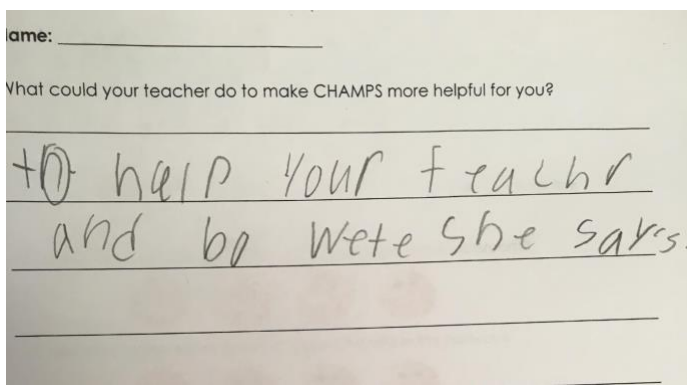 ame:
What could your teacher do to make CHAMPS more helpful for you?
to help your teachr
and bo wete she says.